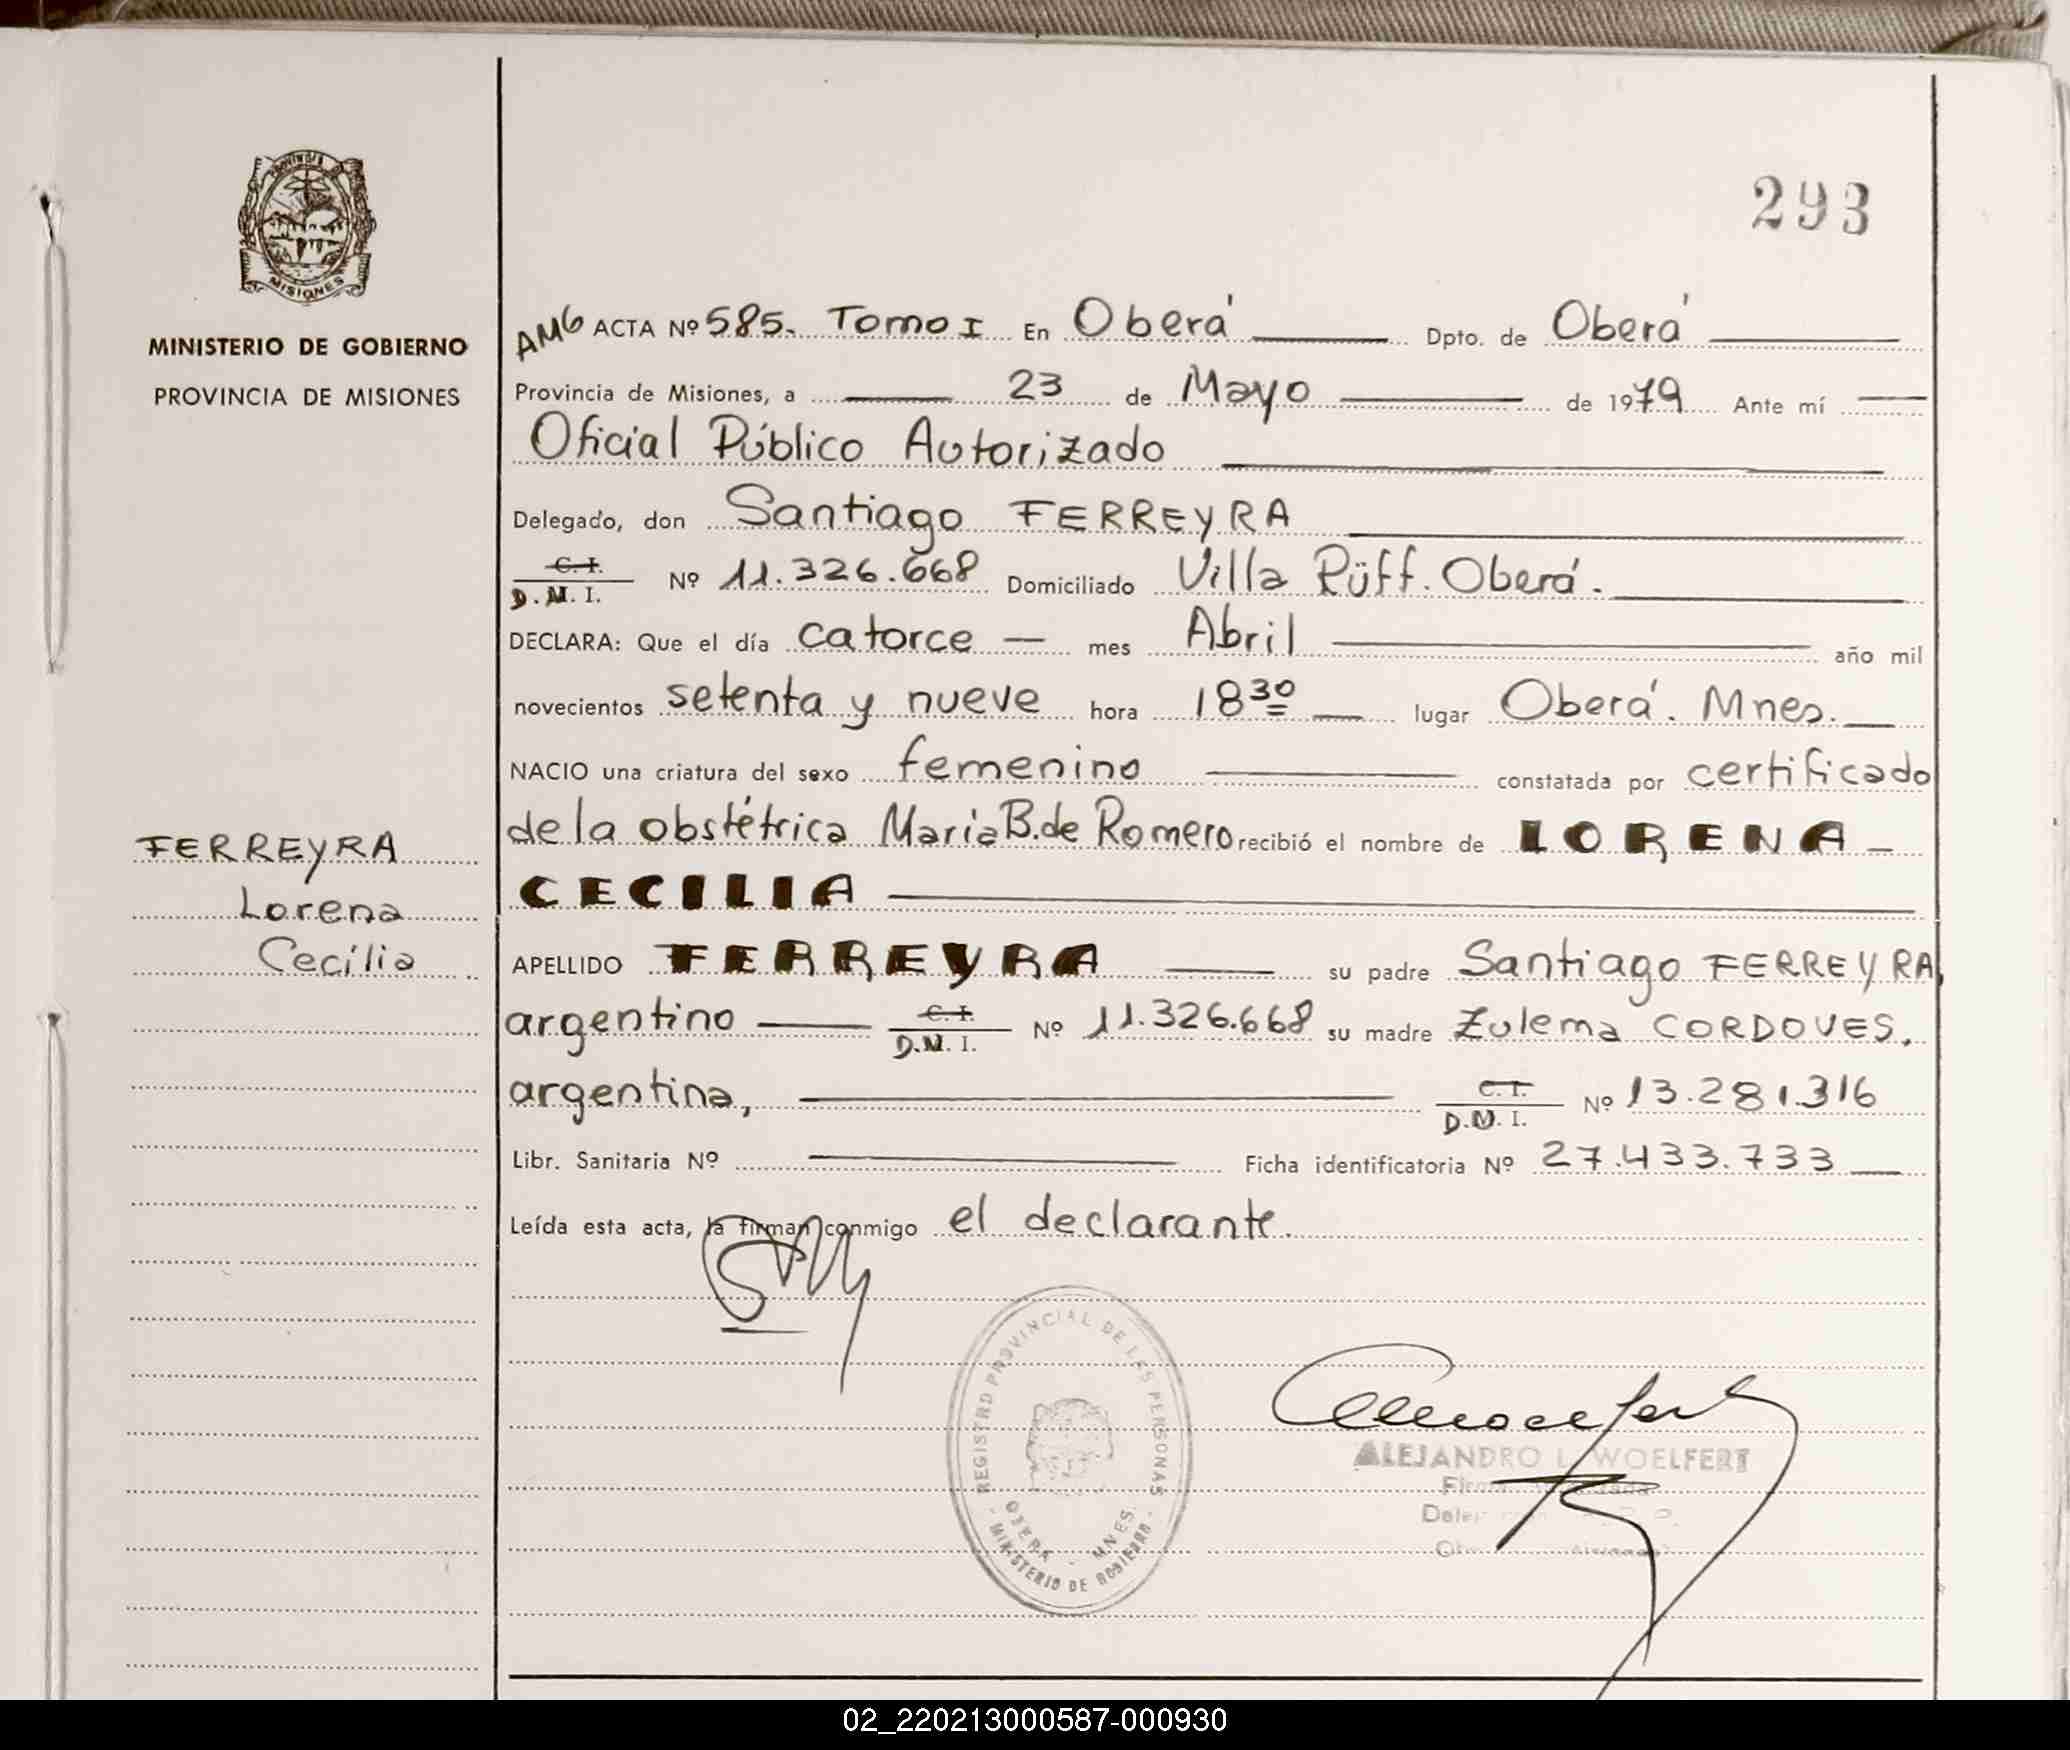 293
PROVINCIA DE
MISIONES
MINISTERIO DE GOBIERNO
PROVINCIA DE MISIONES
AMG ACTA Nº 585. Tomo I En Oberá Dpto. de Oberá
Provincia de Misiones, a 23 de Mayo de 1979 Ante mí
Oficial Público Autorizado
Delegado, don Santiago FERREYRA
C. I.
D.N. I. Nº 11.326.668 Domiciliado Villa Rüff. Oberá.
DECLARA: Que el día catorce — mes Abril año mil
novecientos setenta y nueve hora 18 30 lugar Oberá. Mnes.
NACIO una criatura del sexo femenino constatada por certificado
de la obstétrica María B. de Romero recibió el nombre de LORENA
CECILIA
FERREYRA
Lorena
Cecilia
APELLIDO FERREYRA su padre Santiago FERREYRA,
argentino C. I.
D.N. I. Nº 11.326.668 su madre Zulema CORDOVES.
argentina, C. I.
D.N. I. Nº 13.281.316
Libr. Sanitaria Nº Ficha identificatoria Nº 27.433.733
Leída esta acta, la firman conmigo el declarante.
REGISTRO PROVINCIAL DE LAS PERSONAS
OBERA - MNES.
- MINISTERIO DE GOBIERNO -
ALEJANDRO L. WOELFERT
02_220213000587-000930